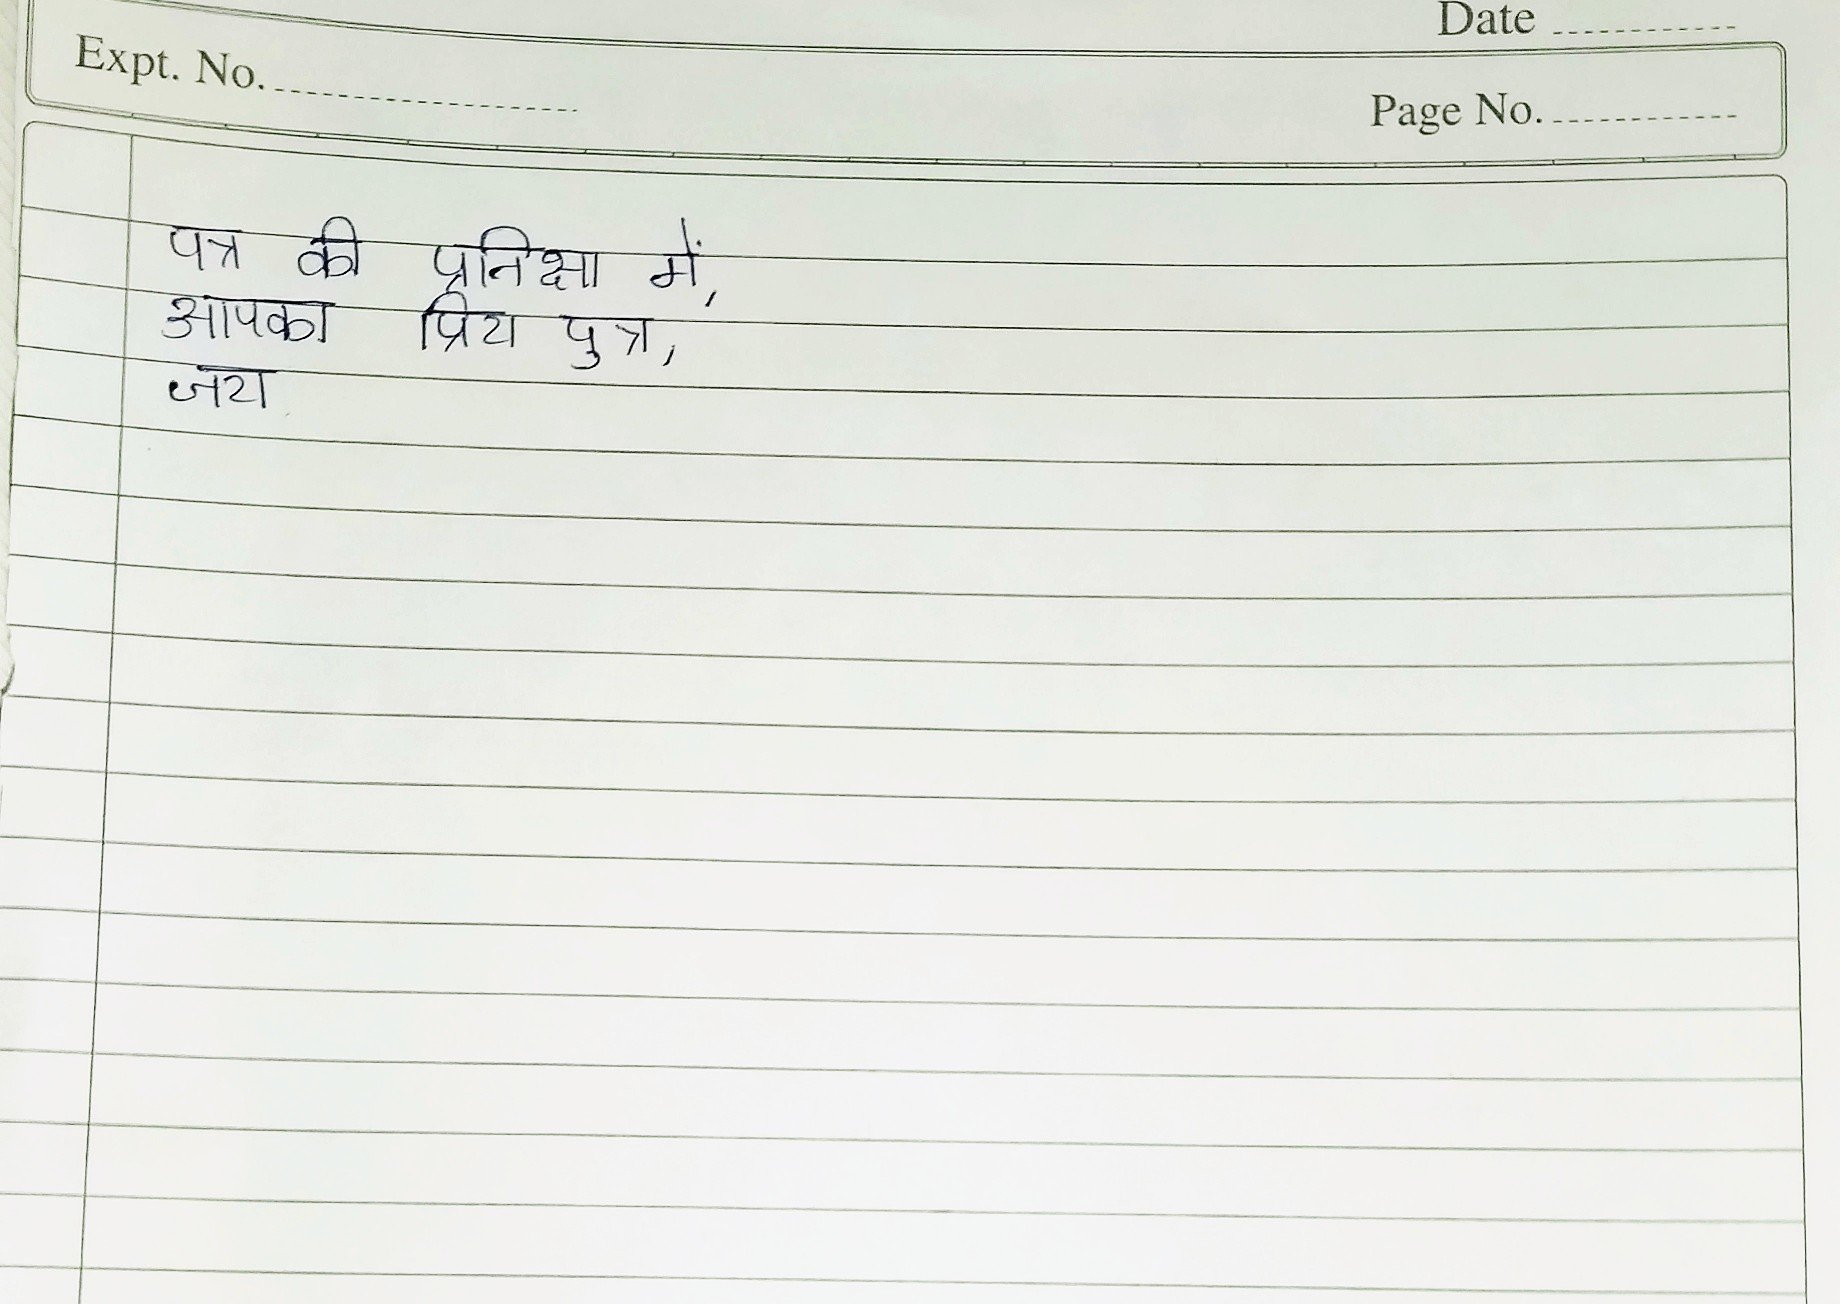 Date
Expt. No.
Page No.
पत्र की प्रतिक्षा में,
आपका प्रिय पुत्र,
जय